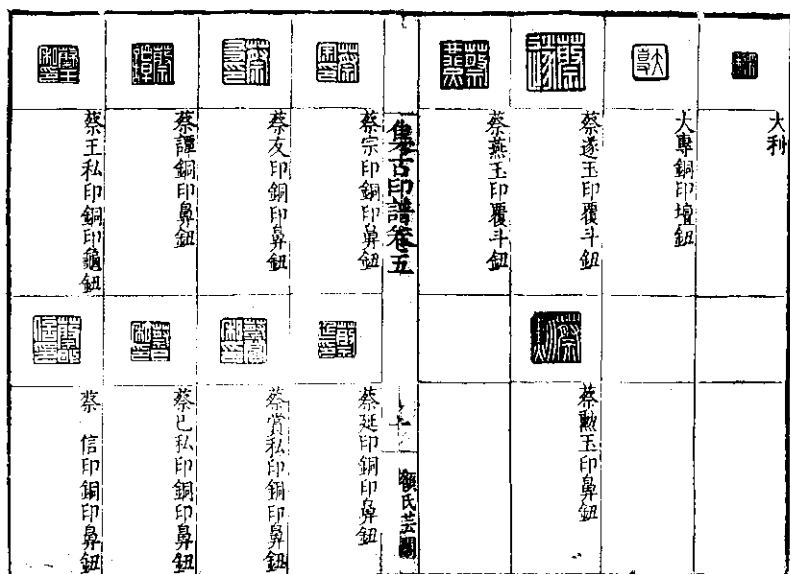 大利
大專銅印壇鈕
蔡遂玉印覆斗鈕
蔡燕玉印覆斗鈕
蔡勲玉印鼻鈕
集古印譜卷五
顧氏芸閣
蔡宗印銅印鼻鈕
蔡友印銅印鼻鈕
蔡譚銅印鼻鈕
蔡王私印銅印龜鈕
蔡延印銅印鼻鈕
蔡賞私印銅印鼻鈕
蔡已私印銅印鼻鈕
蔡 信印銅印鼻鈕